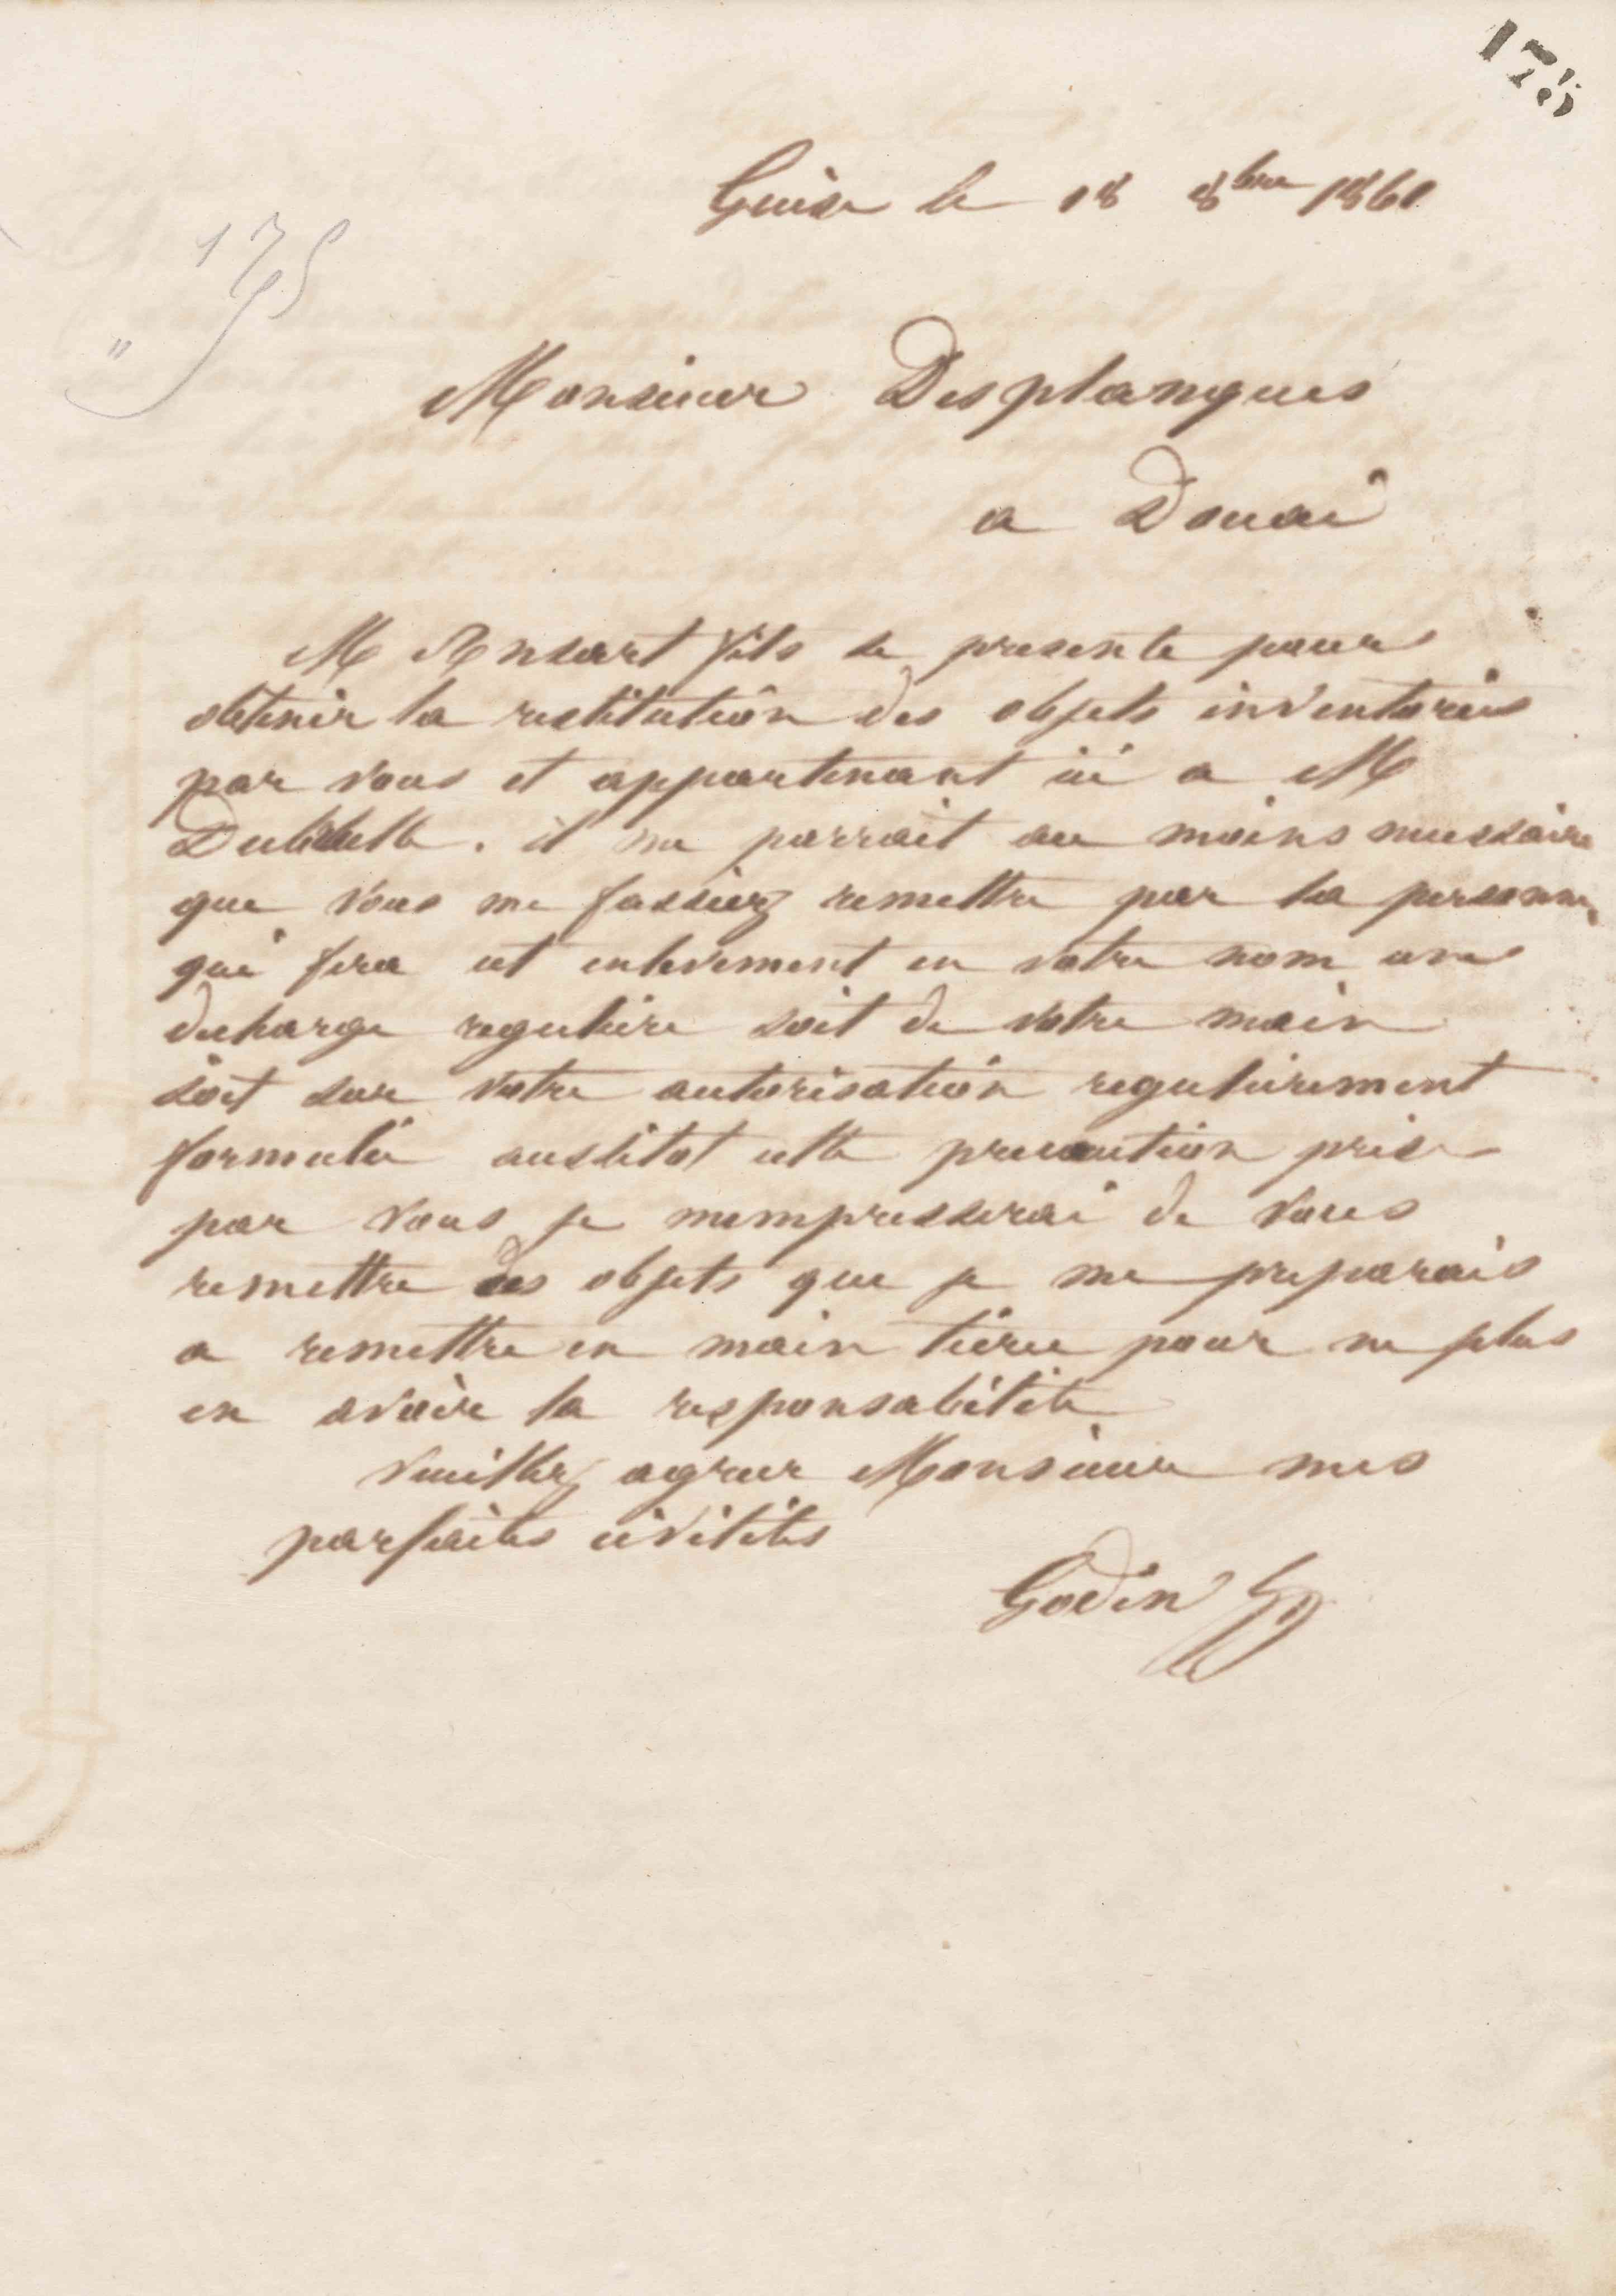 175
Guise le 18 8bre 1860
175
"
Monsieur Desplanques
a Douai
M Ansart fils se presente pour
obtenir la restitution des objets inventoriés
par vous et appartenant ici a M
il me parrait au moins necessaire
que vous me fassiez remettre par la personne
qui fera cet enlevement en votre nom une
decharge reguliere soit de votre main
soit sur votre autorisation regulierement
formulée aussitot cette precaution prise
par vous je mempresserai de vous
remettre des objets que je me preparais
a remettre en main tierce pour ne plus
en avoir la responsabilité
Veuillez agreer Monsieur mes
parfaites civilités
Godin